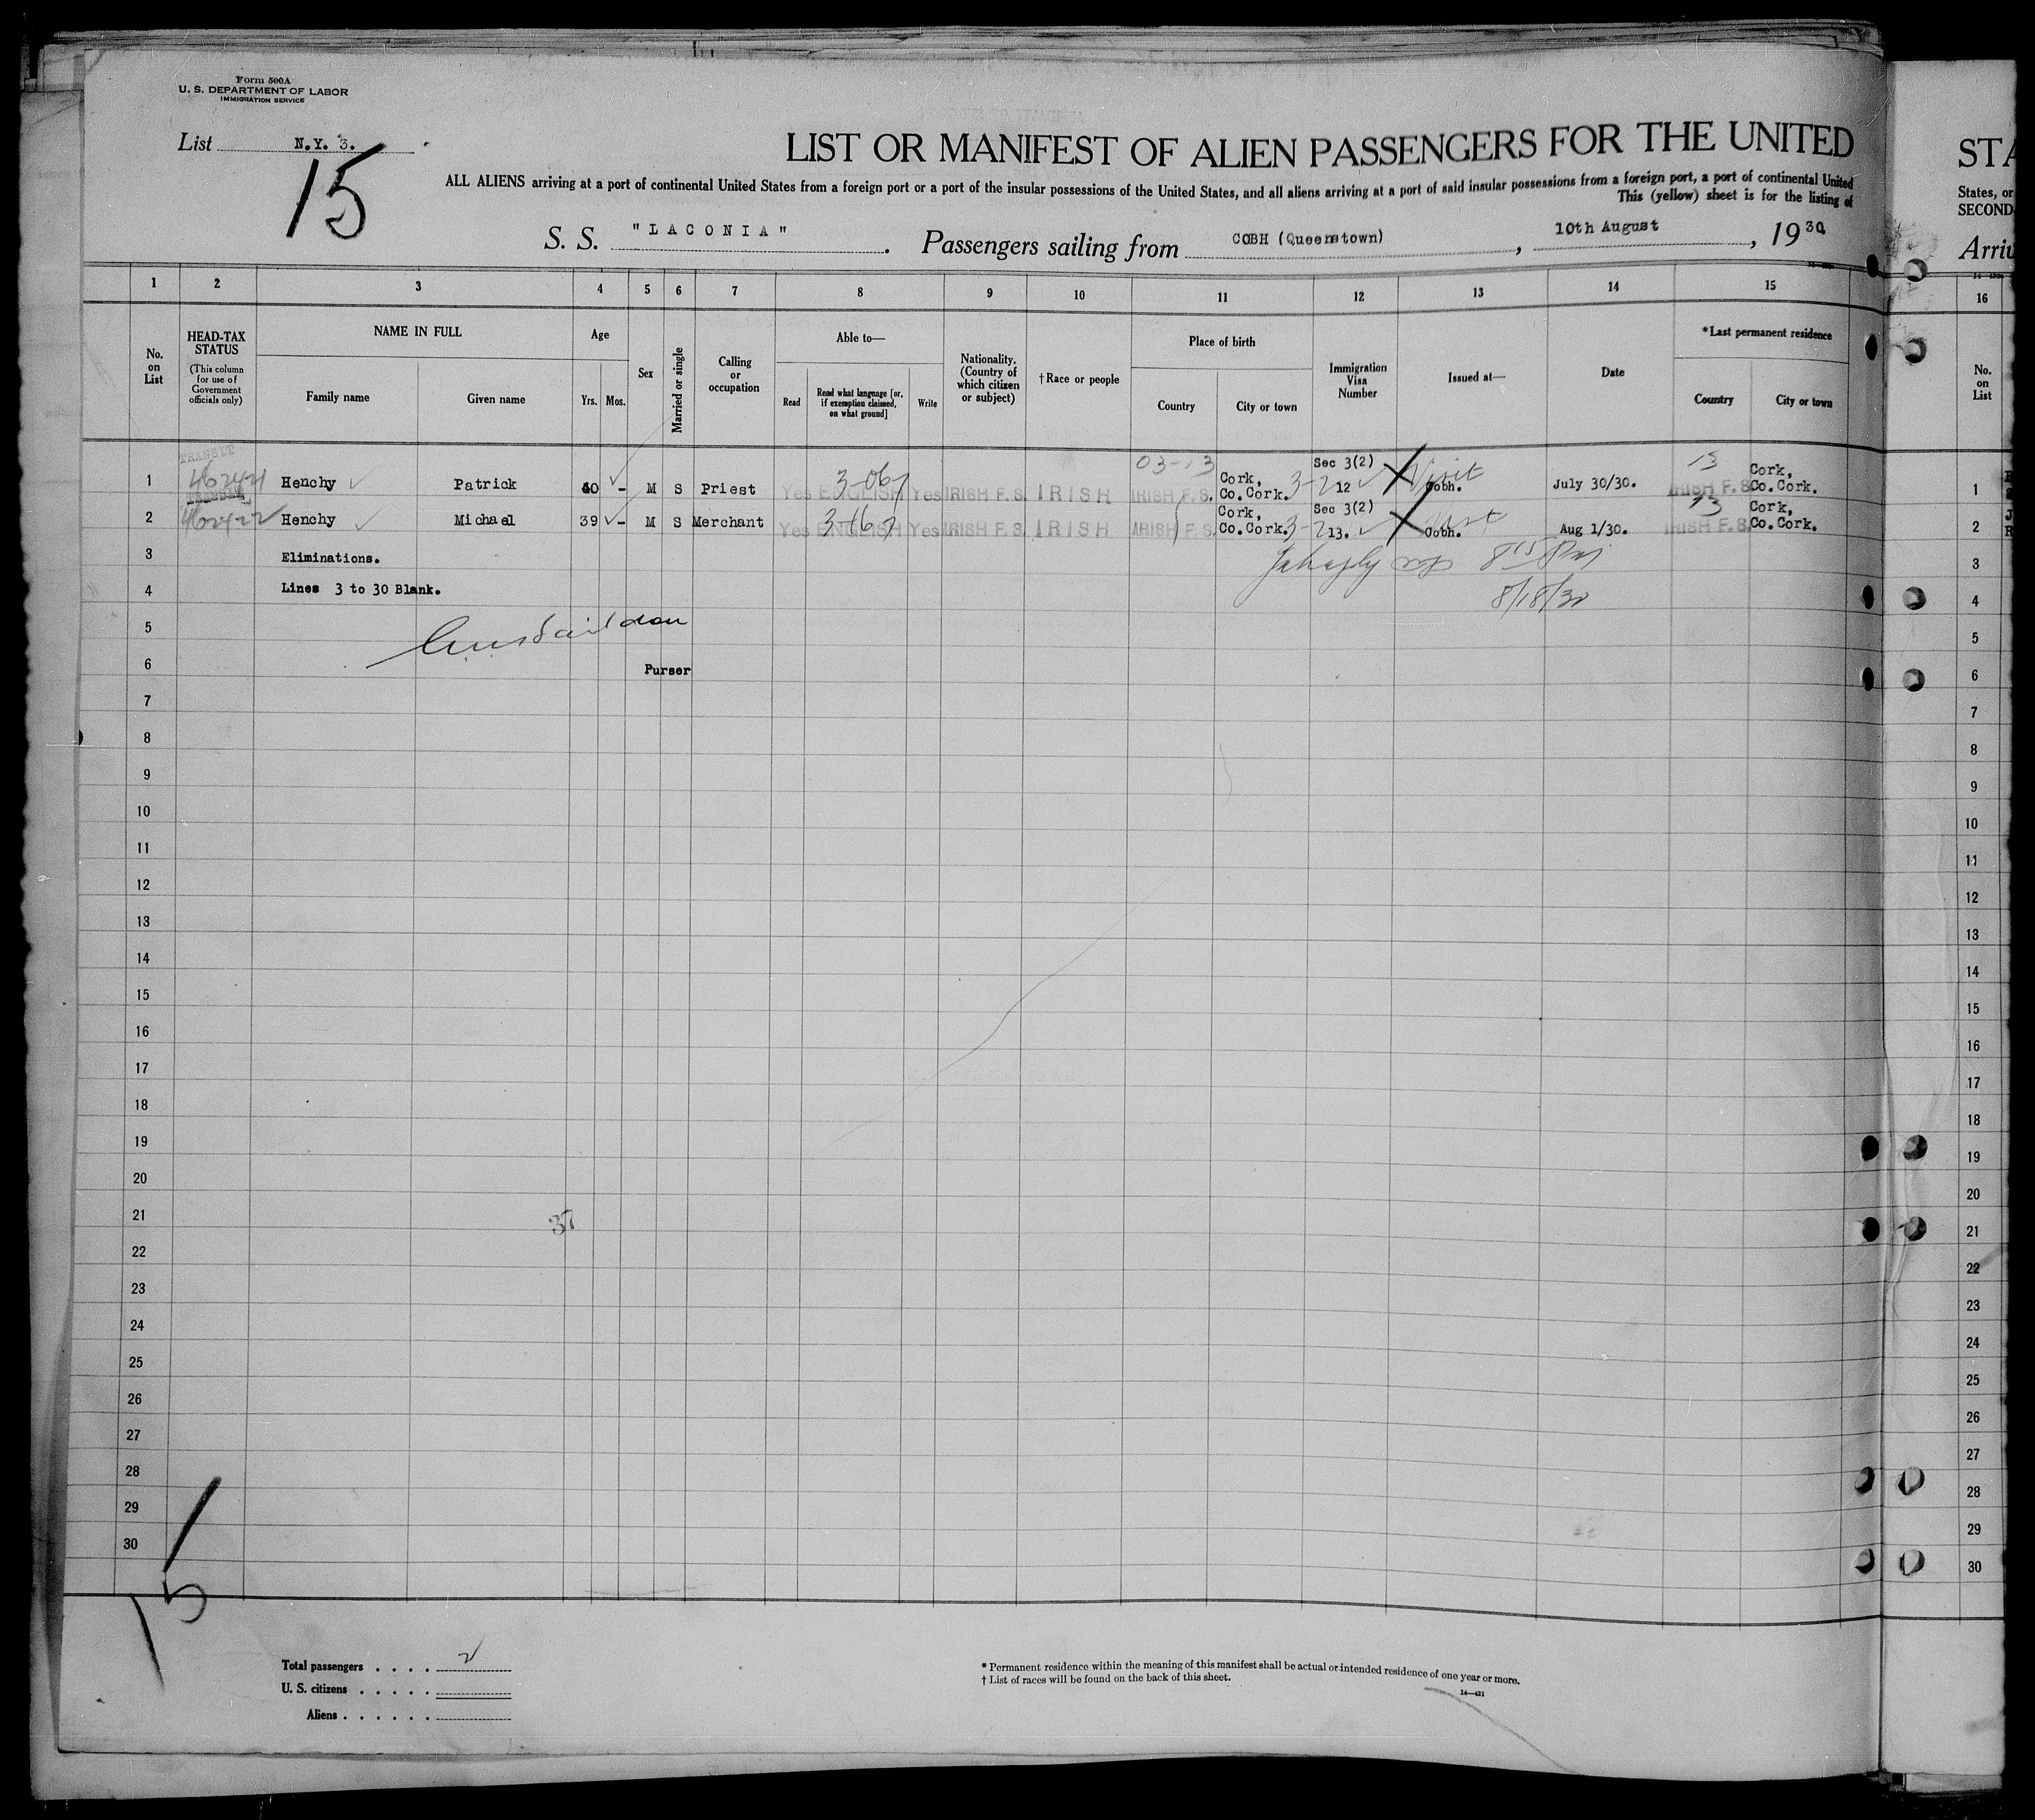 Form 500A
U. S. DEPARTMENT OF LABOR
IMMIGRATION SERVICE
List N.Y. 3.
15
LIST OR MANIFEST OF ALIEN PASSENGERS FOR THE UNITED
STA
ALL ALIENS arriving at a port of continental United States from a foreign port or a port of the insular possessions of the United States, and all aliens arriving at a port of said insular possessions from a foreign port, a port of continental United
States, or
This (yellow) sheet is for the listing of
SECOND
S. S. "LACONIA". Passengers sailing from COBH (Queenstown), 10th August, 1930
Arriv
1 2 3 4 5 6 7 8 9 10 11 12 13 14 15 16
No. on List
HEAD-TAX STATUS
(This column for use of Government officials only)
NAME IN FULL
Family name
Given name
Age
Yrs. Mos.
Sex
Married or single
Calling or occupation
Able to—
Read
Read what language [or, if exemption claimed, on what ground]
Write
Nationality. (Country of which citizen or subject)
†Race or people
Place of birth
Country
City or town
Immigration Visa Number
Issued at—
Date
*Last permanent residence
Country
City or town
No. on List
TRANSIT
03-13 Sec 3(2) 13
1 Henchy Patrick 40 - M S Priest Yes ENGLISH Yes IRISH F.S. IRISH IRISH F.S. Cork, Co.Cork. 12 Visit Cobh. July 30/30. IRISH F.S. Cork, Co.Cork. 1
Sec 3(2) 13
2 462422 Henchy Michael 39 - M S Merchant Yes ENGLISH Yes IRISH F.S. IRISH IRISH F.S. Cork, Co.Cork. 13. Cobh. Aug 1/30. IRISH F.S. Cork, Co.Cork. 2
3 Eliminations. 3
4 Lines 3 to 30 Blank. 8/18/30 4
5 5
6 Purser 6
7 7
8 8
9 9
10 10
11 11
12 12
13 13
14 14
15 15
16 16
17 17
18 18
19 19
20 20
21 37 21
22 22
23 23
24 24
25 25
26 26
27 27
28 28
29 29
30 30
15
Total passengers . . . . 2
U. S. citizens . . . . .
Aliens . . . . . .
* Permanent residence within the meaning of this manifest shall be actual or intended residence of one year or more.
† List of races will be found on the back of this sheet.
14—421